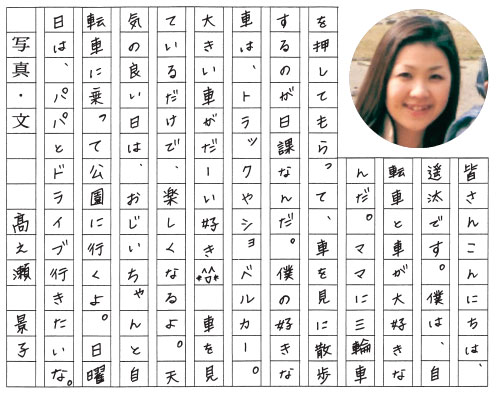 皆さんこんにちは、
遥汰です。僕は、自
転車と車が大好きな
んだ。ママに三輪車
を押してもらって、車を見に散歩
するのが日課なんだ。僕の好きな
車は、トラックやショベルカー。
大きい車がだーい好き 車を見
ているだけで、楽しくなるよ。天
気の良い日は、おじいちゃんと自
転車に乗って公園に行くよ。日曜
日は、パパとドライブ行きたいな。
写真・文 髙之瀬 景子